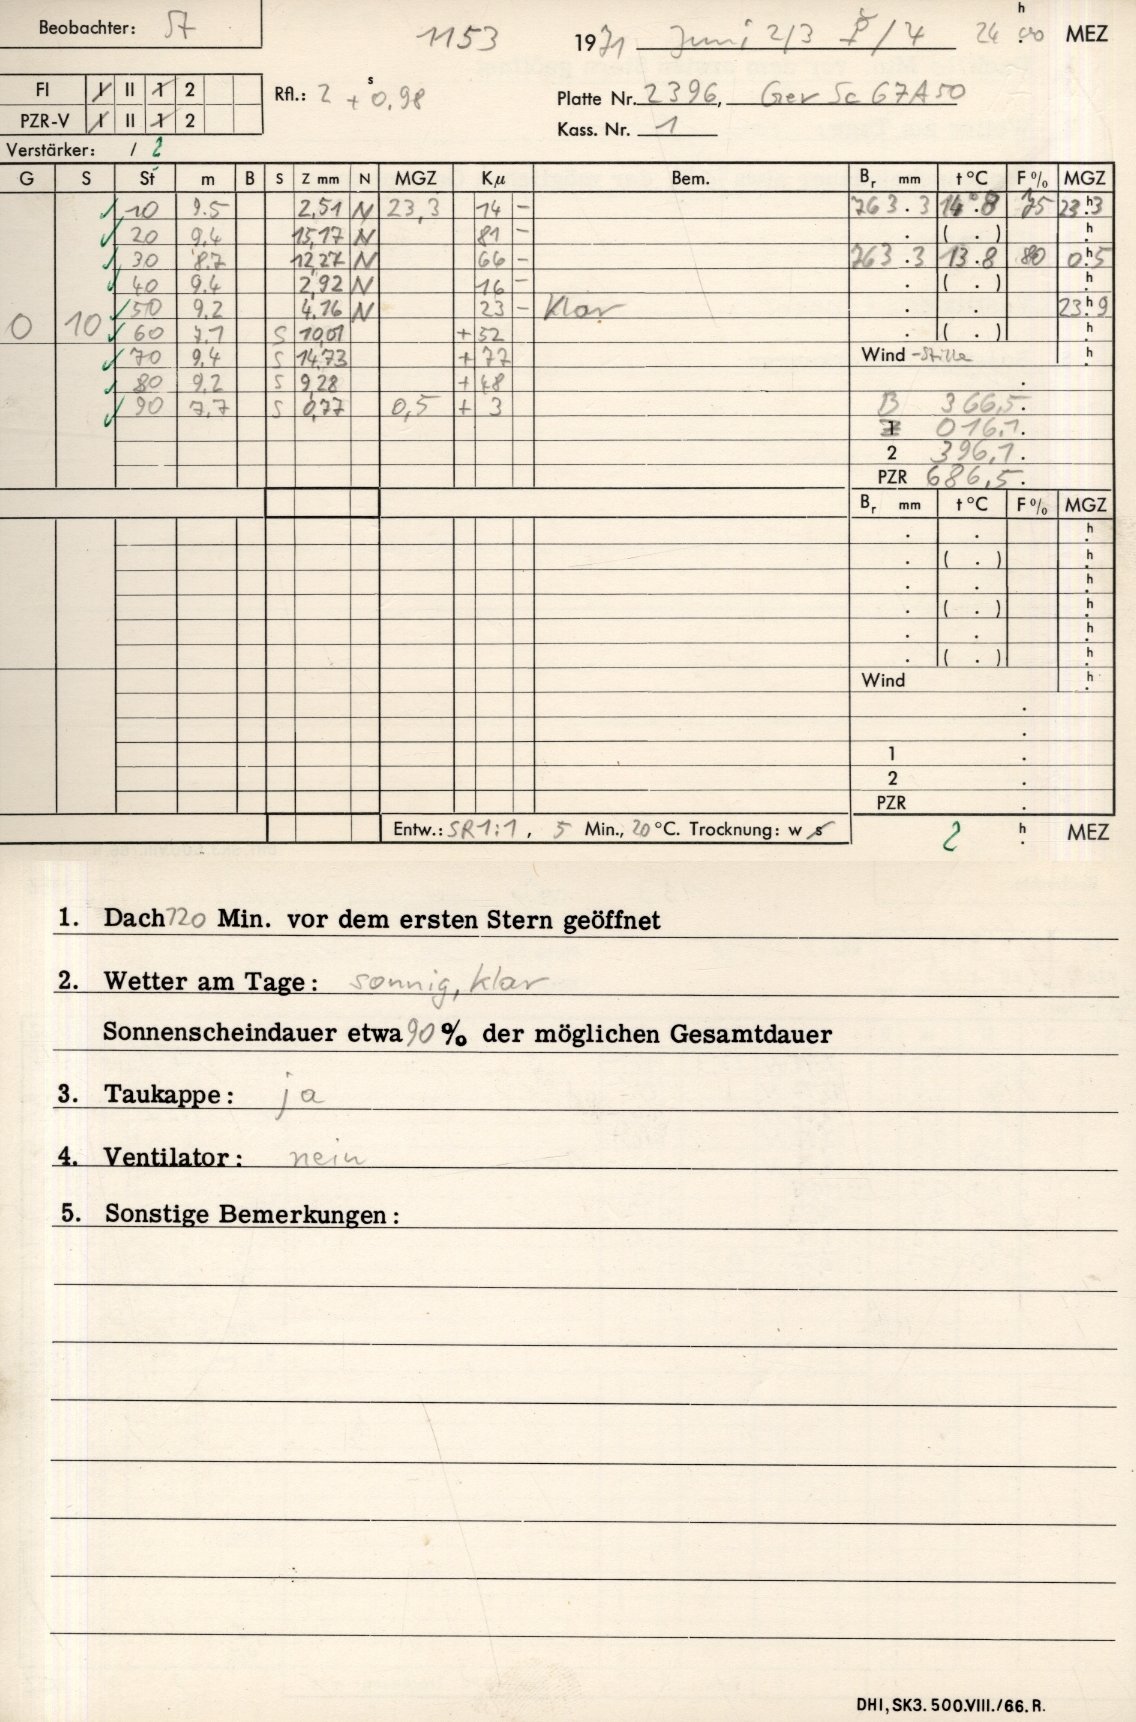 Beobachter: St
1153
1971 Juni 2/3 24 h 00 MEZ
FI I II 1 2
PZR-V I II 1 2
Rfl.: 2 + 0,98 s
Platte Nr. 2396, Gev Sc 67A50
Kass. Nr. 1
Verstärker: / 2
G S St m B S Z mm N MGZ Kμ Bem. Br mm t °C F % MGZ
10 9.5 2,51 N 23,3 14 – 763.3 14.8 75 23.h3
20 9.4 15,17 N 81 – . ( . ) h
30 8.7 12,27 N 66 – 763.3 13.8 80 0.h5
40 9.4 2,92 N 16 – . ( . ) h
50 9.2 4,16 N 23 – Klar . . 23.h9
0 10 60 7.1 S 10,01 + 52 . ( . ) h
70 9.4 S 14,73 + 77 Wind -Stille h
80 9.2 S 9,28 + 48 .
90 7.7 S 0,77 0,5 + 3 B 366,5.
1 016,1.
2 396,1.
PZR 686,5.
Br mm t °C F % MGZ
. . h
. ( . ) h
. . h
. ( . ) h
. . h
. ( . ) h
Wind h
.
.
1 .
2 .
PZR .
Entw.: SR 1:1, 5 Min., 20 °C. Trocknung: w s 2 h MEZ
1. Dach 120 Min. vor dem ersten Stern geöffnet
2. Wetter am Tage: sonnig, klar
Sonnenscheindauer etwa 90 % der möglichen Gesamtdauer
3. Taukappe: ja
4. Ventilator: nein
5. Sonstige Bemerkungen:
DHI, SK3. 500.VIII./66. R.